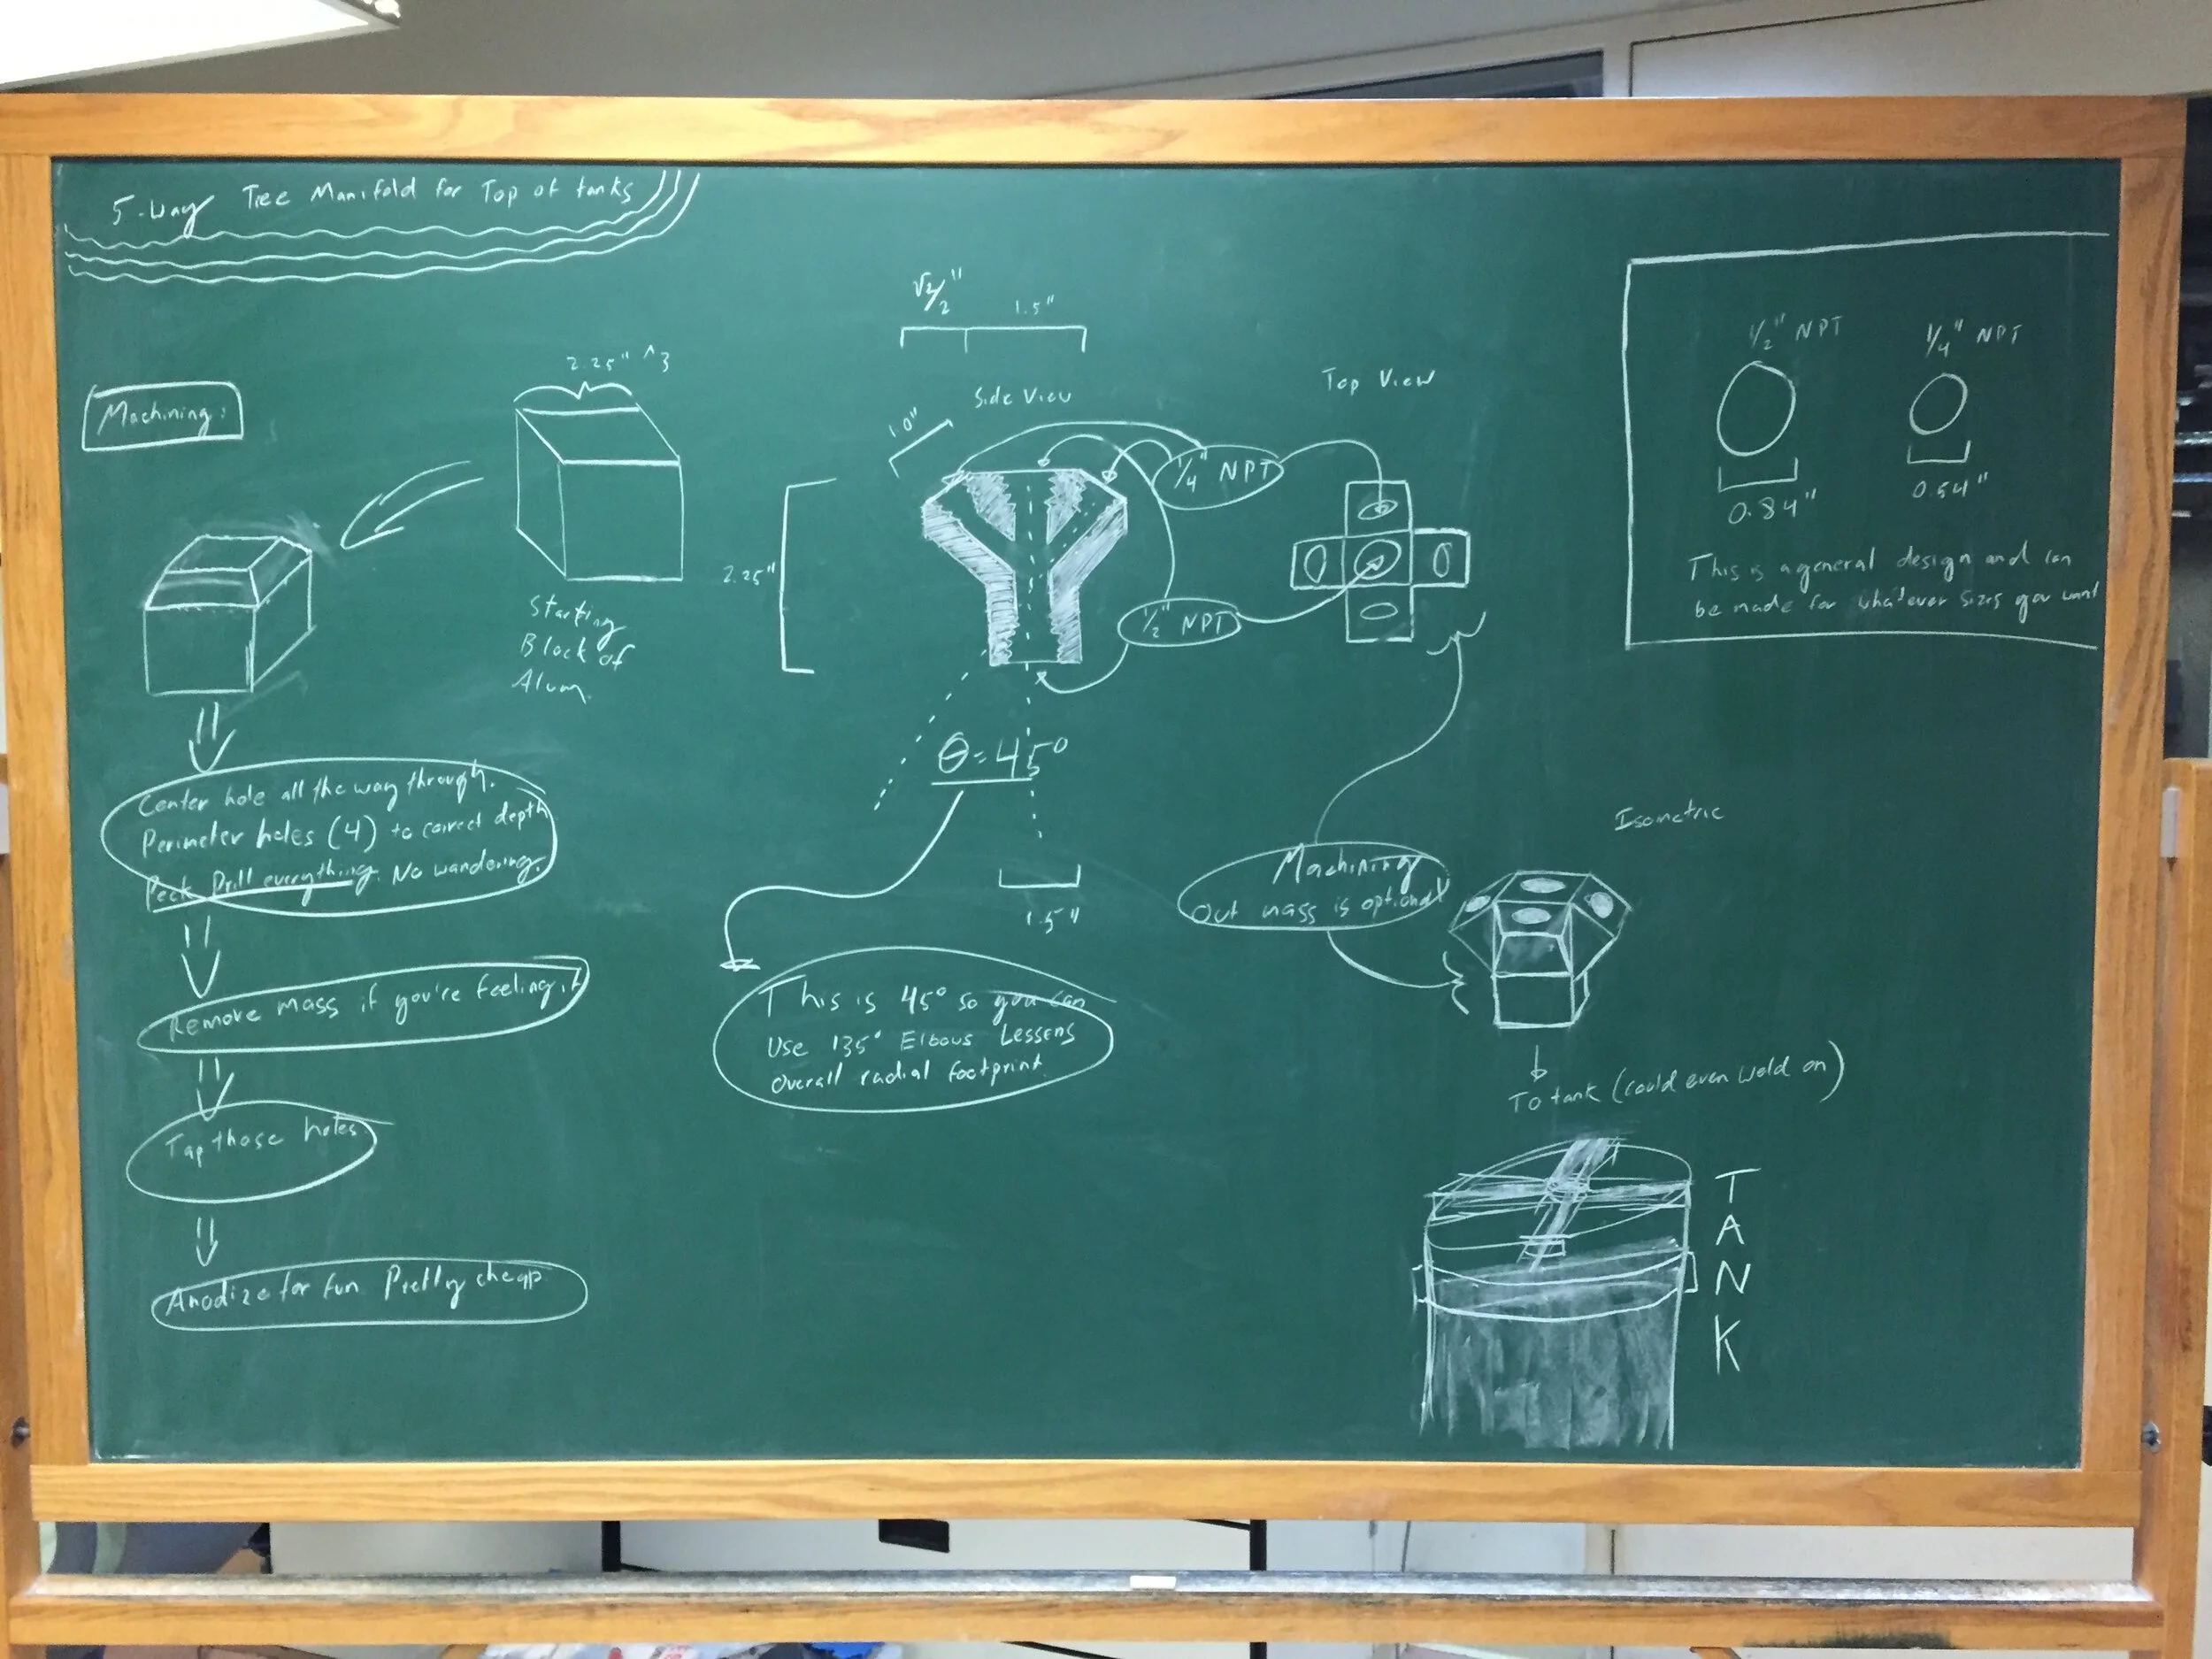 5-Way Tree Manifold for Top of tanks
Machining:
2.25" ^3
Starting
Block of
Alum.
Center hole all the way through.
Perimeter holes (4) to correct depth
Peck Drill everything. No wandering.
Remove mass if you're feeling it
Tap those holes
Anodize for fun. Pretty cheap
√2/2"
1.5"
Side View
1.0"
2.25"
1/4" NPT
1/2" NPT
θ=45°
1.5"
This is 45° so you can
Use 135° Elbows Lessens
Overall radial footprint.
Top View
Machining
Out mass is optional
Isometric
To tank (could even weld on)
TANK
1/2" NPT
0.84"
1/4" NPT
0.54"
This is a general design and can
be made for whatever sizes you want